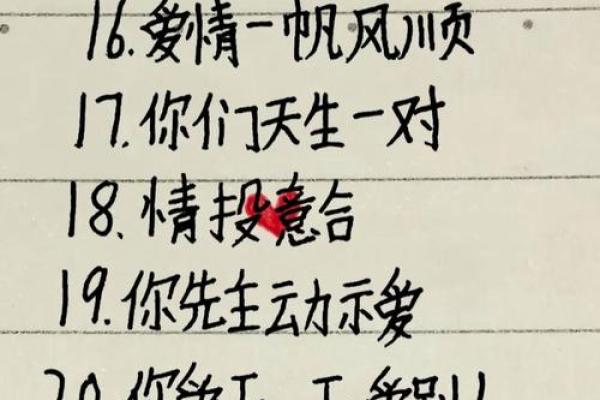 16.爱情一帆风顺
17.你们天生一对
18.情投意合
19.你先主动示爱
20.你爱